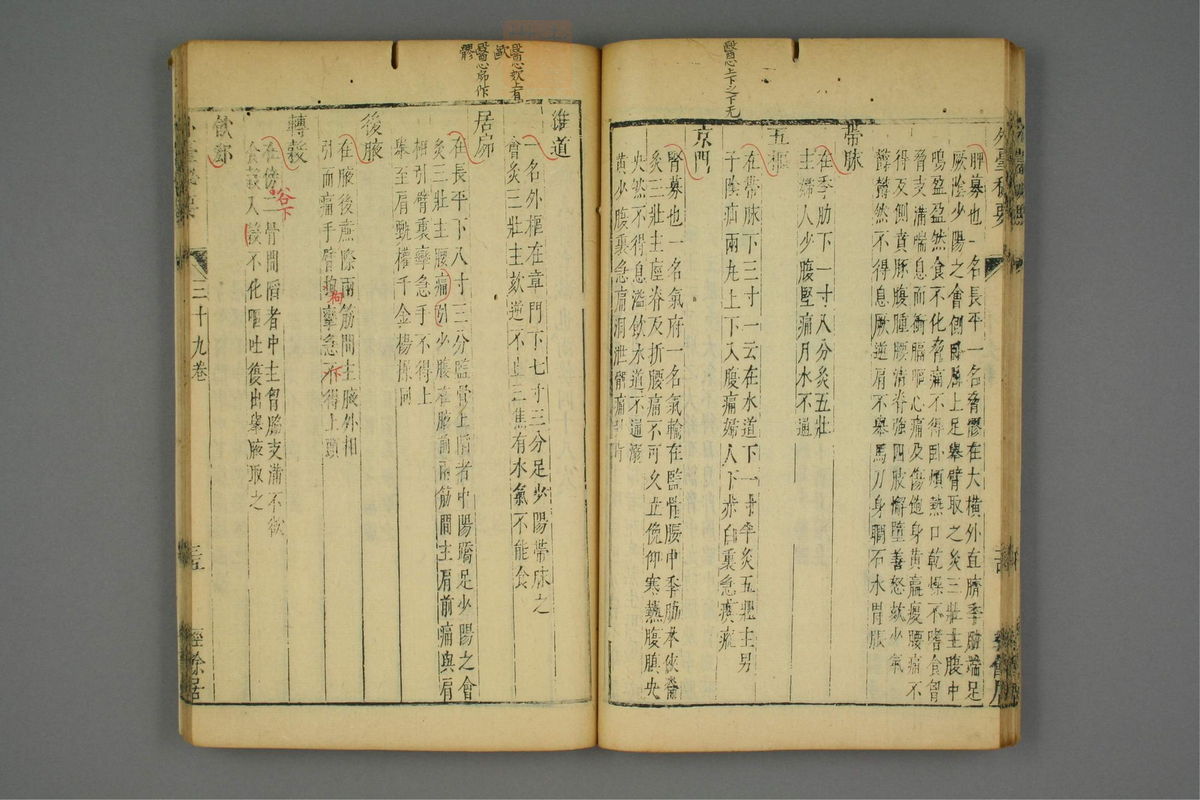 醫心上下之下无
外臺秘要
脾募也一名長平一名脅髎在大橫外直臍季肋端足
厥陰少陽之會側臥屈上足舉臂取之灸三壯主腹中
鳴盈盈然食不化脅痛不得臥煩熱口乾燥不嗜食胷
脅支滿喘息而衝膈嘔心痛及傷飽身黃羸瘦腰痛不
得反側賁豚腹腫腰清脊強四肢懈墮善怒欬少氣
鬱鬱然不得息厥逆肩不舉馬刀身瞤石水胃脹
帶脉
在季肋下一寸八分灸五壯
主婦人少腹堅痛月水不通
五樞
在帶脉下三寸一云在水道下一寸半灸五壯主男
子陰疝兩丸上下入腹痛婦人下赤白裏急瘈瘲
京門
腎募也一名氣府一名氣輸在監骨腰中季肋本俠脊
灸三壯主痙脊反折腰痛不可久立俛仰寒熱腹䐜央
央然不得息溢飲水道不通溺
黃少腹裏急痛洞泄髀痛
醫心欬上有
醫心扁作
髎
維道
一名外樞在章門下七寸三分足少陽帶脉之
會灸三壯主欬逆不止三焦有水氣不能食
居窌
在長平下八寸三分監骨上陷者中陽蹻足少陽之會
灸三壯主腰痛引少腹在腋前兩筋間主肩前痛與肩
相引臂裏攣急手不得上
舉至肩
權千金楊操同
後腋
在腋後廉際兩筋間主腋外相
引而痛手臂拘攣急不得上頭
拘
轉穀
在傍二骨間陷者中主胷脇支滿不欲
食穀入不化嘔吐復出舉腋取之
谷下
飲郄
三十九卷
經餘居